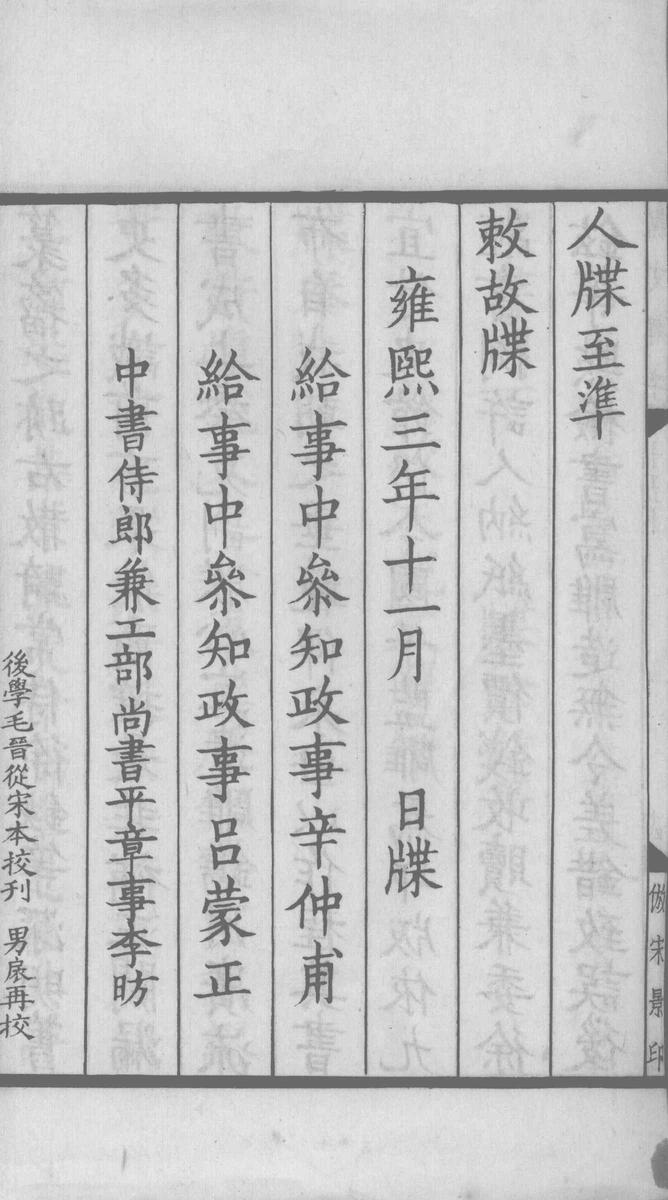 人牒至準
敕故牒
雍熙三年十一月　日牒
給事中叅知政事辛仲甫
給事中叅知政事呂蒙正
中書侍郎兼工部尚書平章事李昉
後學毛晉從宋本挍刊　男扆再挍
倣宋景印